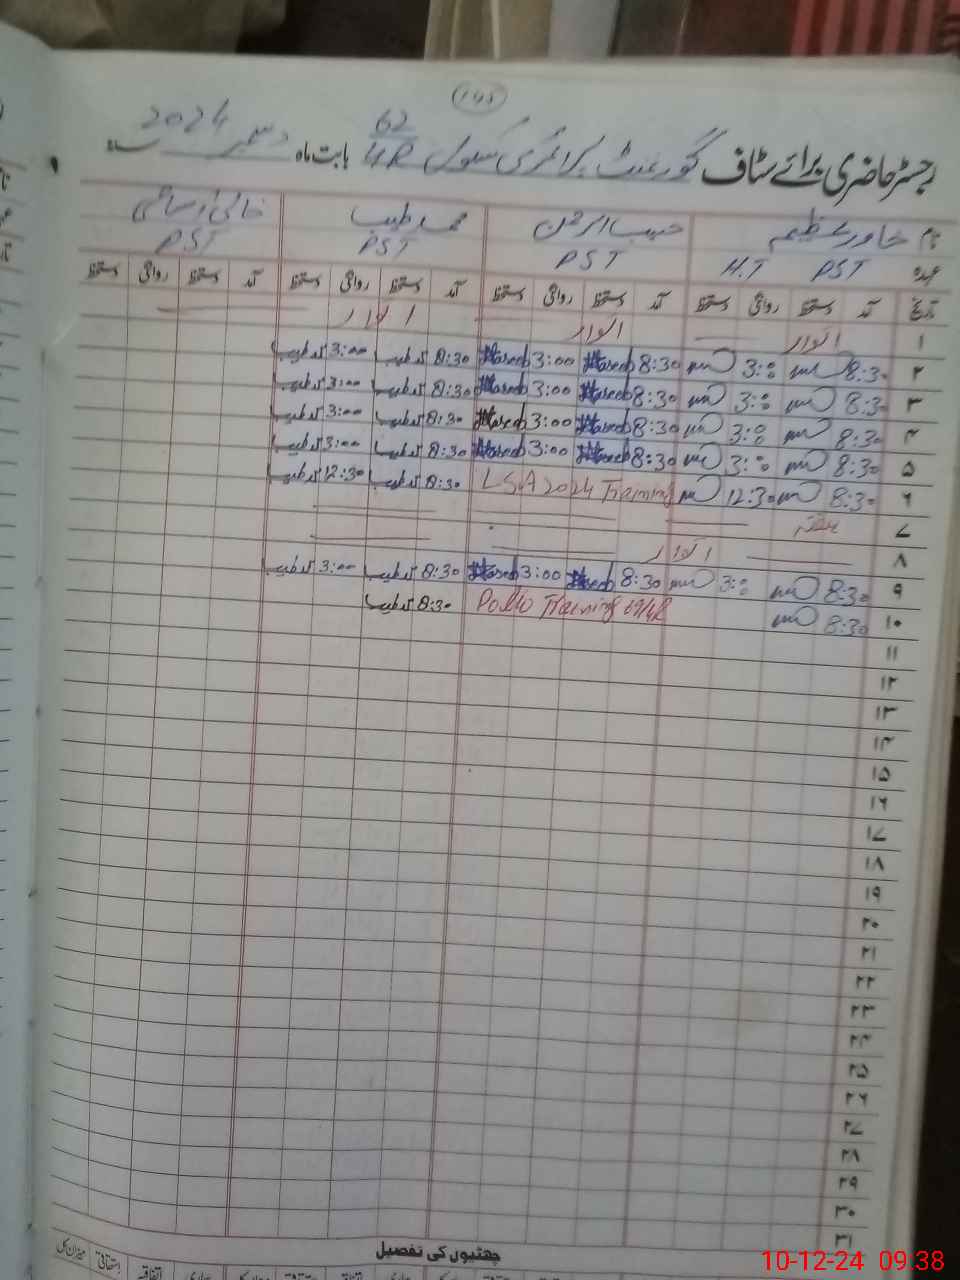 145
رجسٹر حاضری برائے سٹاف گورنمنٹ پرائمری سکول 62/4R بابت ماہ دسمبر 2024 سنہ
نام خاور عظیم حبیب الرحمن محمد طیب خالی اسامی
عہدہ PST H.T PST PST PST
تاریخ آمد دستخط روانگی دستخط آمد دستخط روانگی دستخط آمد دستخط روانگی دستخط آمد دستخط روانگی دستخط
۱ اتوار اتوار اتوار
۲ 8:30 3:00 8:30 Haseeb 3:00 Haseeb 8:30 طیب 3:00 طیب
۳ 8:30 3:00 8:30 Haseeb 3:00 Haseeb 8:30 طیب 3:00 طیب
۴ 8:30 3:00 8:30 Haseeb 3:00 Haseeb 8:30 طیب 3:00 طیب
۵ 8:30 3:00 8:30 Haseeb 3:00 Haseeb 8:30 طیب 3:00 طیب
۶ 8:30 12:30 LSA 2024 Training 8:30 طیب 12:30 طیب
۷ ہفتہ
۸ اتوار
۹ 8:30 3:00 8:30 Haseeb 3:00 Haseeb 8:30 طیب 3:00 طیب
۱۰ 8:30 Polio Training 69/4R 8:30 طیب
۱۱
۱۲
۱۳
۱۴
۱۵
۱۶
۱۷
۱۸
۱۹
۲۰
۲۱
۲۲
۲۳
۲۴
۲۵
۲۶
۲۷
۲۸
۲۹
۳۰
۳۱
چھٹیوں کی تفصیل
اتفاقیہ استحقاقی میزان کل
10-12-24 09.38